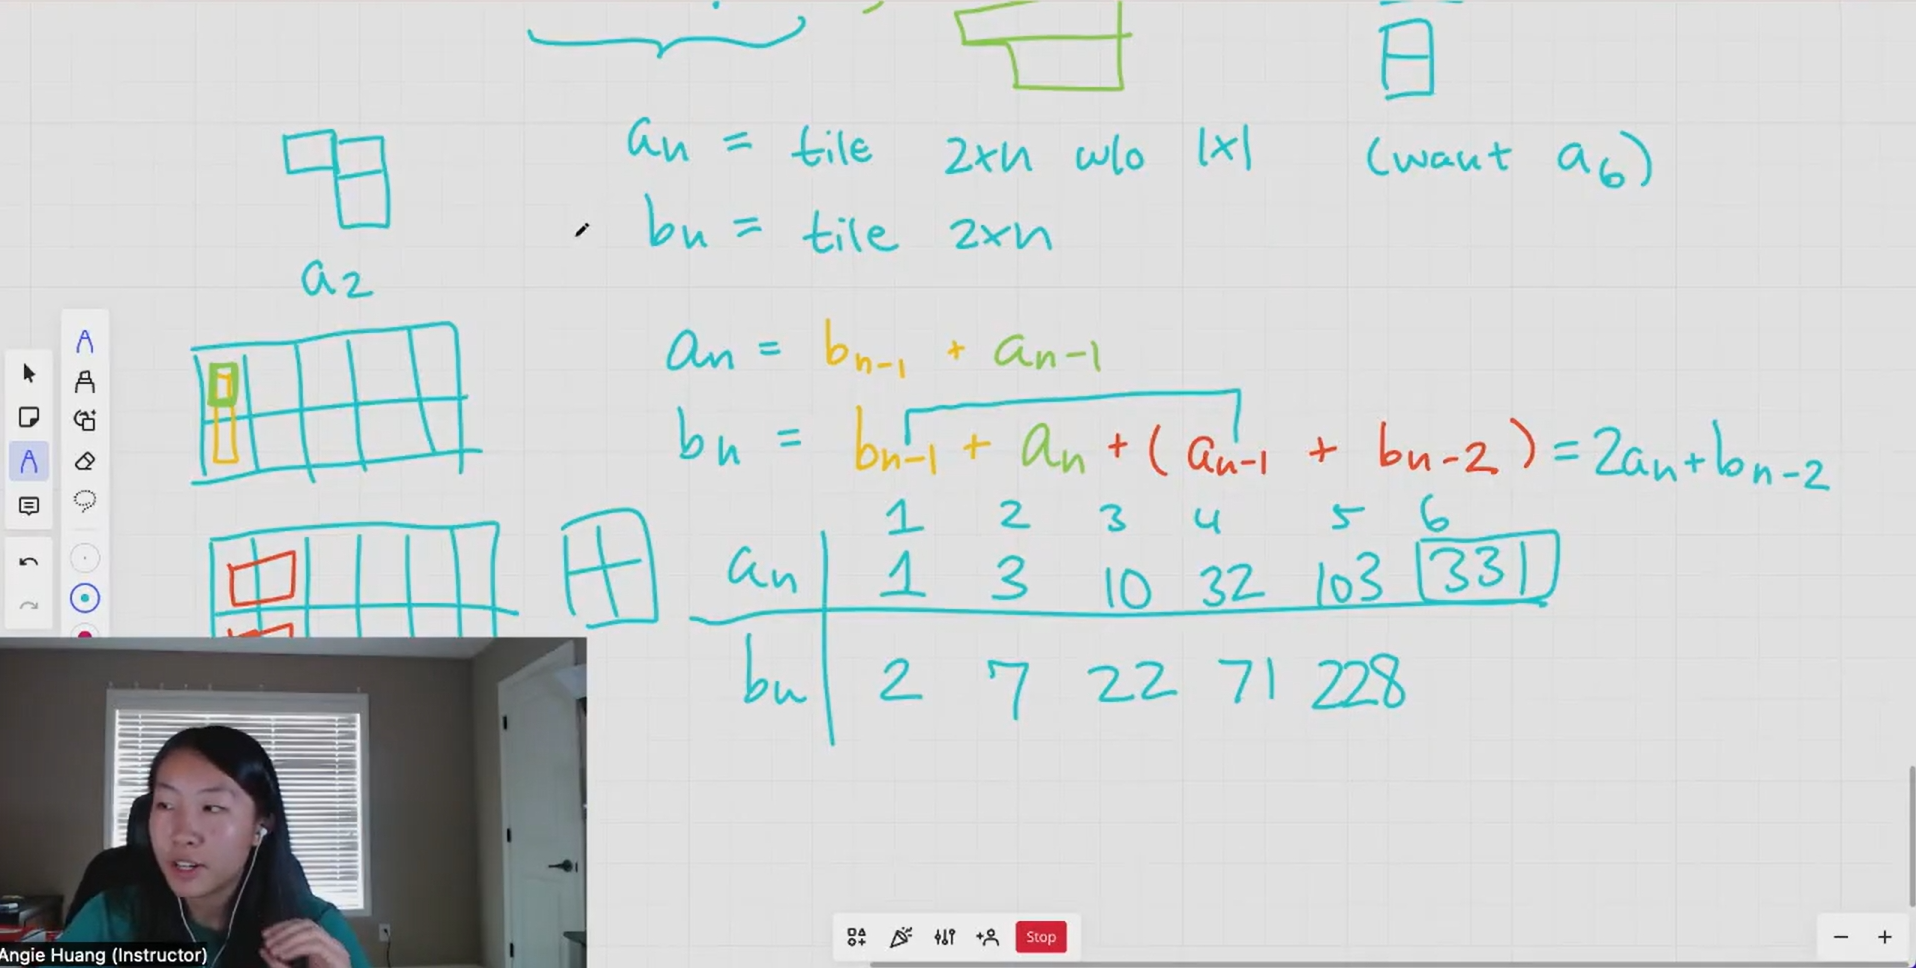 an = tile 2xn w/o 1x1 (want a6)
bn = tile 2xn
a2
an = bn-1 + an-1
bn = bn-1 + an + (an-1 + bn-2) = 2an + bn-2
1 2 3 4 5 6
an 1 3 10 32 103 331
bn 2 7 22 71 228
Stop
Angie Huang (Instructor)